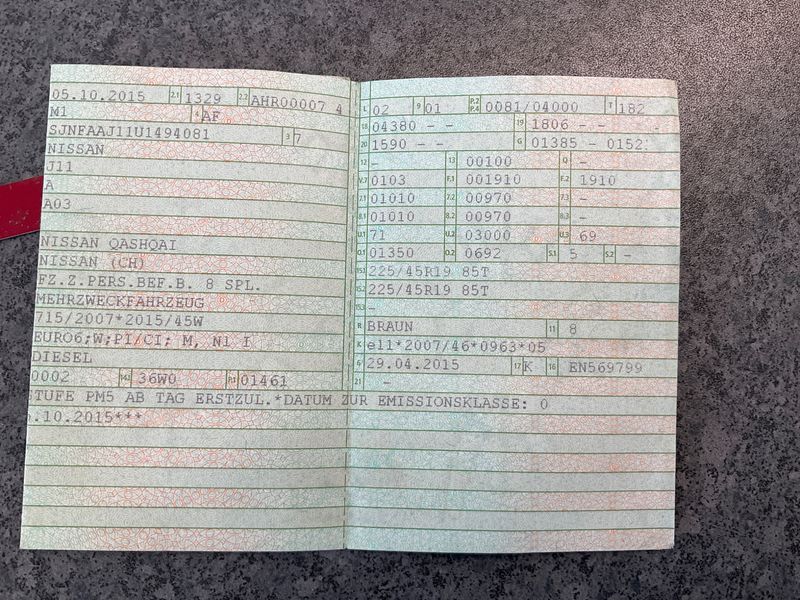 05.10.2015 2.1 1329 2.2 AHR00007 4
M1 4 AF
SJNFAAJ11U1494081 3 7
NISSAN
J11
A
A03
NISSAN QASHQAI
NISSAN (CH)
FZ.Z.PERS.BEF.B. 8 SPL.
MEHRZWECKFAHRZEUG
715/2007*2015/45W
EURO6;W;PI/CI; M, N1 I
DIESEL
0002 14.1 36W0 P.1 01461
STUFE PM5 AB TAG ERSTZUL.*DATUM ZUR EMISSIONSKLASSE: 0
.10.2015***
L 02 9 01 P.2 P.4 0081/04000 T 182
18 04380 - - 19 1806 - -
20 1590 - - G 01385 - 0152
12 - 13 00100 Q -
V.7 0103 F.1 001910 F.2 1910
7.1 01010 7.2 00970 7.3 -
8.1 01010 8.2 00970 8.3 -
U.1 71 U.2 03000 U.3 69
O.1 01350 O.2 0692 S.1 5 S.2 -
15.1 225/45R19 85T
15.2 225/45R19 85T
15.3 -
R BRAUN 11 8
K e11*2007/46*0963*05
6 29.04.2015 17 K 16 EN569799
21 -